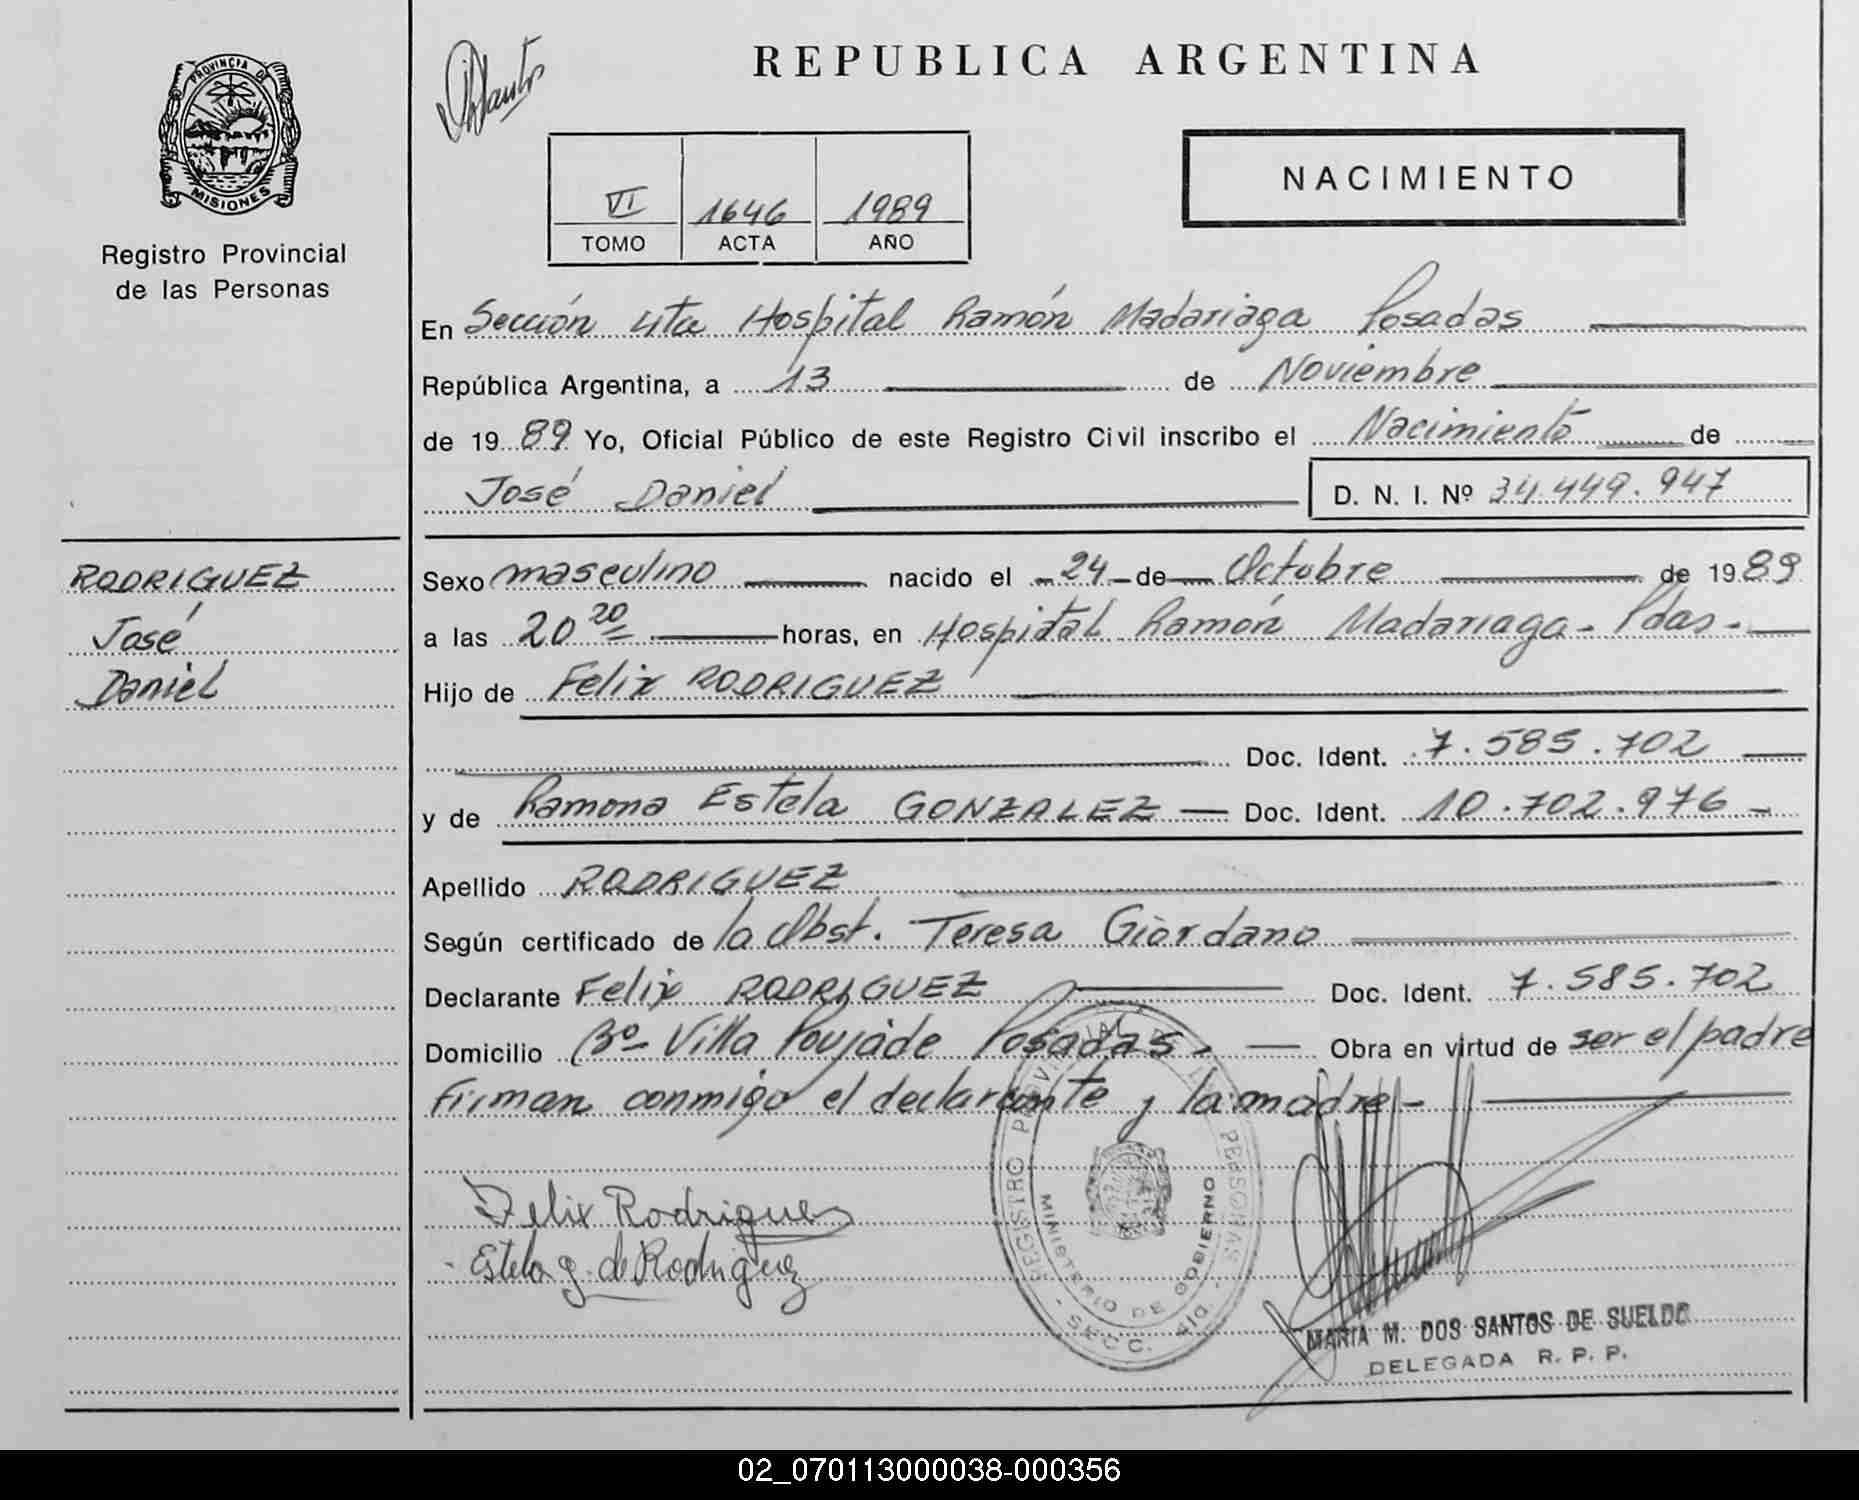 PROVINCIA DE
MISIONES
Registro Provincial
de las Personas
REPUBLICA ARGENTINA
NACIMIENTO
VI 1646 1989
TOMO ACTA AÑO
En Sección 4ta Hospital Ramón Madariaga Posadas
República Argentina, a 13 de Noviembre
de 1989 Yo, Oficial Público de este Registro Civil inscribo el Nacimiento de
José Daniel D. N. I. Nº 34.449.947
RODRIGUEZ
José
Daniel
Sexo masculino nacido el 24 de Octubre de 1989
a las 20 20 horas, en Hospital Ramón Madariaga - Pdas -
Hijo de Felix RODRIGUEZ
Doc. Ident. 7.585.702
y de Ramona Estela GONZALEZ — Doc. Ident. 10.702.976 -
Apellido RODRIGUEZ
Según certificado de la Obst. Teresa Giordano
Declarante Felix RODRIGUEZ Doc. Ident. 7.585.702
Domicilio Bº Villa Poujade Posadas - Obra en virtud de ser el padre
Firman conmigo el declarante y la madre -
Felix Rodriguez
Estela g. de Rodriguez
REGISTRO PROVINCIAL DE LAS PERSONAS
MINISTERIO DE GOBIERNO
- SECC. 4ta -
MARIA M. DOS SANTOS DE SUELDO
DELEGADA R. P. P.
02_070113000038-000356